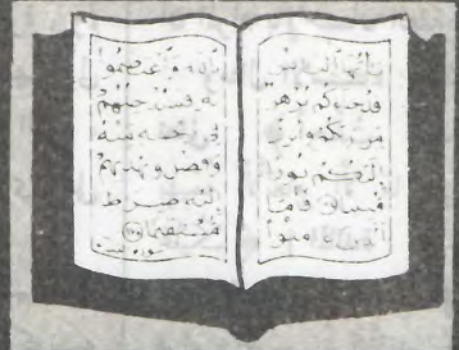 يَٰأَيُّهَا ٱلنَّاسُ
قَدْ جَاءَكُم بُرْهَٰنٌ
مِّن رَّبِّكُمْ وَأَنزَلْنَا
إِلَيْكُمْ نُورًا
مُّبِينًا فَأَمَّا
ٱلَّذِينَ ءَامَنُوا۟
بِٱللَّهِ وَٱعْتَصَمُوا۟
بِهِۦ فَسَيُدْخِلُهُمْ
فِى رَحْمَةٍ مِّنْهُ
وَفَضْلٍ وَيَهْدِيهِمْ
إِلَيْهِ صِرَٰطًا
مُّسْتَقِيمًا ﴿١٧٥﴾
سورة النساء